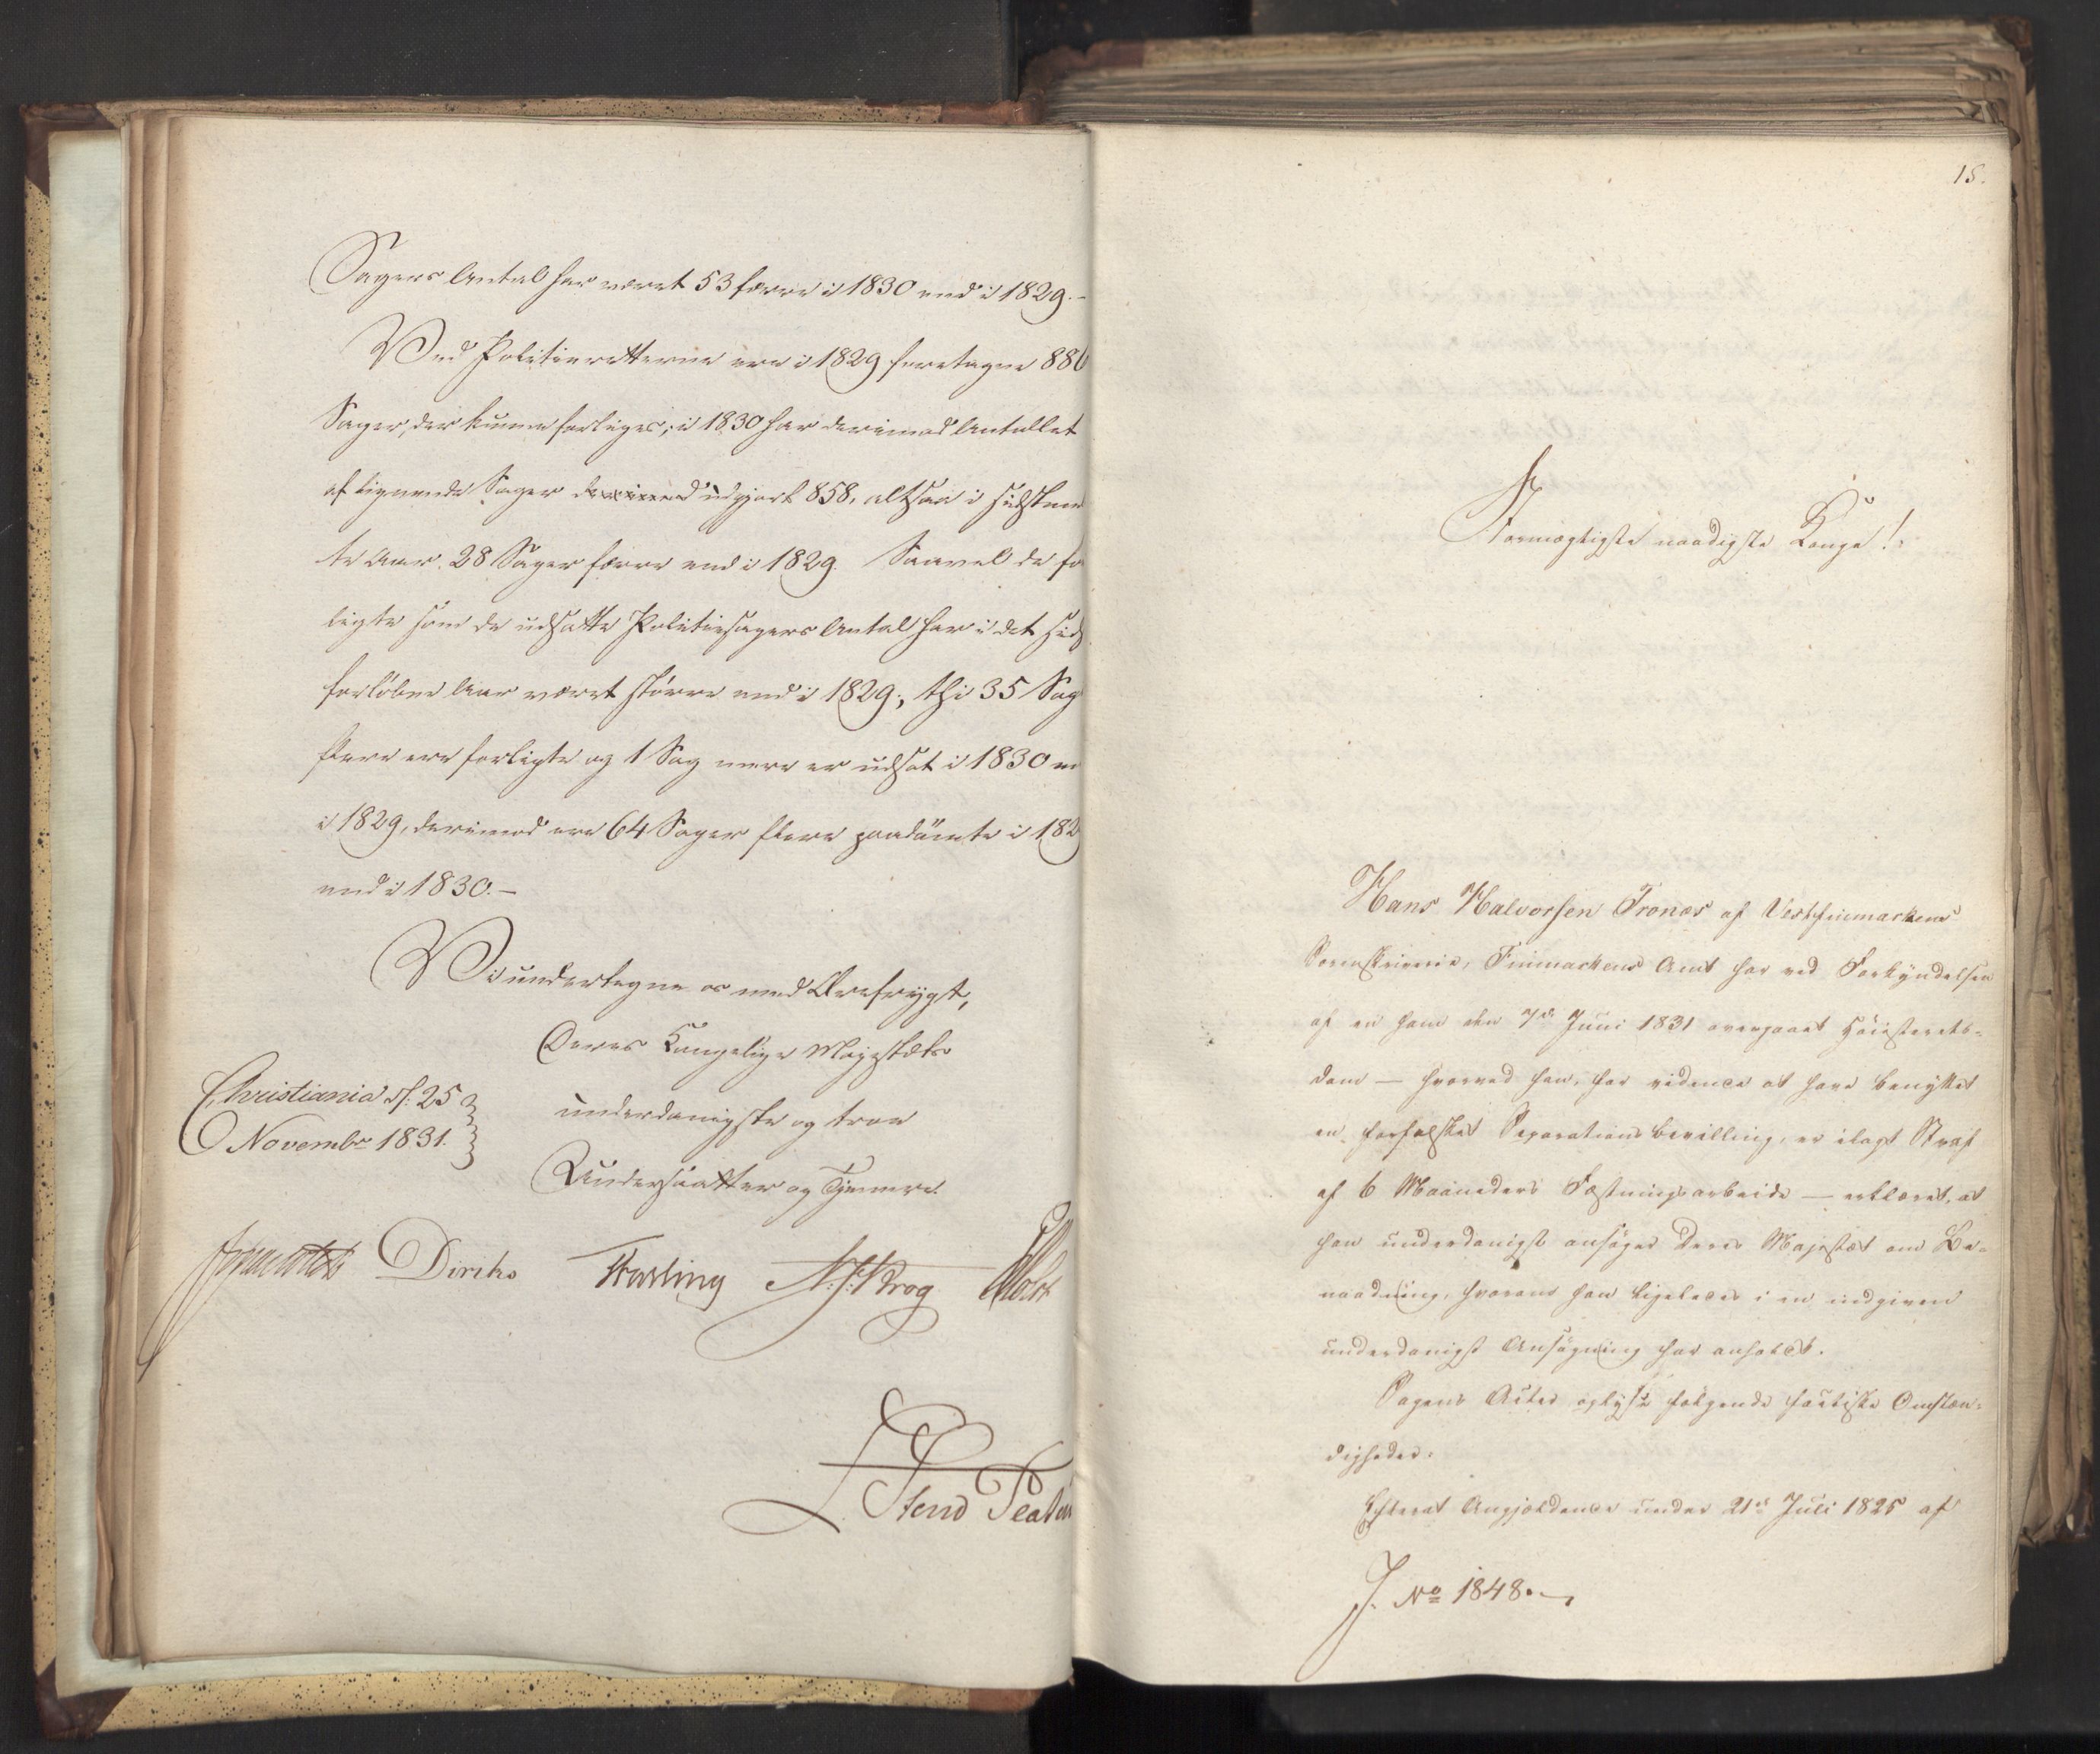 Sagers Antal har været 53 færre i 1830 end i 1829.-
Ved Politieretterne ere i 1829 foretagne 886
Sager, der kunne forliges; i 1830 har derimod Antallet
af lignende Sager derimod udgjort 858, altsaa i sidstnævn
te Aar 28 Sager færre end i 1829. Saavel de for
ligte som de udsatte Politiesagers Antal har i det sidst
forløbne Aar været større end i 1829; thi 35 Sag
flere ere forligte og 1 Sag mere er udsat i 1830 en
i 1829, derimod ere 64 Sager flere paadømte i 182
end i 1830.-
Vi undertegne os med Ærefrygt,
Deres Kongelige Majestæts
Christiania d: 25
Novembr 1831.
underdanigste og troe
Undersaatter og Tjenere.
Diriks
N. J. Krog
Holst
18.
Stormægtigste naadigste Konge!
Hans Halvorsen Tronæs af Vestfinmarkens
Sorenskriverie, Finmarkens Amt har ved Forkyndelsen
af en ham den 7de Juni 1831 overgaaet Høiesterets-
dom — hvorved han, for vidende at have benyttet
en forfalsket Separationsbevilling, er ilagt Straf
af 6 Maaneders Fæstningsarbeide — erklæret, at
han underdanigst ansøger Deres Majestæt om Be-
naadning, hvorom han ligeledes i en indgiven
underdanigst Ansøgning har anholdt.
Sagens Acter oplyse følgende factiske Omstæn-
digheder:
Efterat Angjældende under 21de Juli 1825 af
J. No 1848.